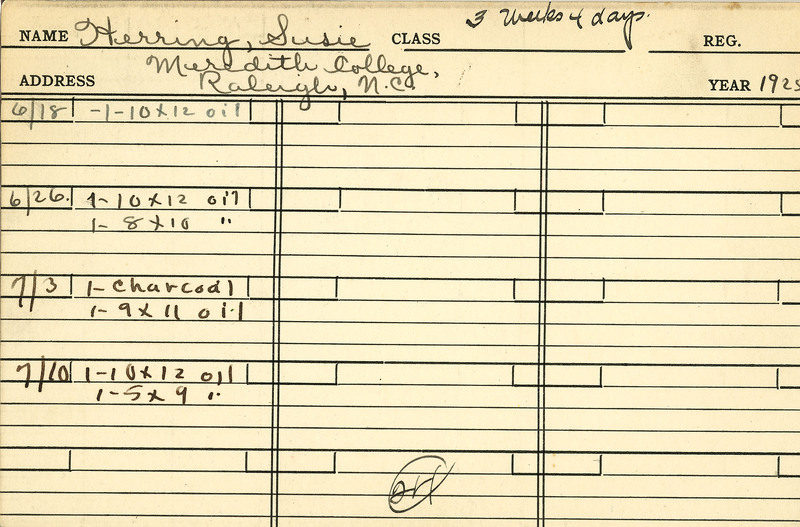 3 weeks 4 days.
NAME Herring, Susie CLASS REG.
Meredith College,
ADDRESS Raleigh, N.C. YEAR 1925
6/18 -1-10x12 oil
6/26. 1-10x12 oil
1- 8x10 "
7/3 1- charcoal
1- 9x11 oil
7/10 1-10x12 oil
1-5x9 "
art